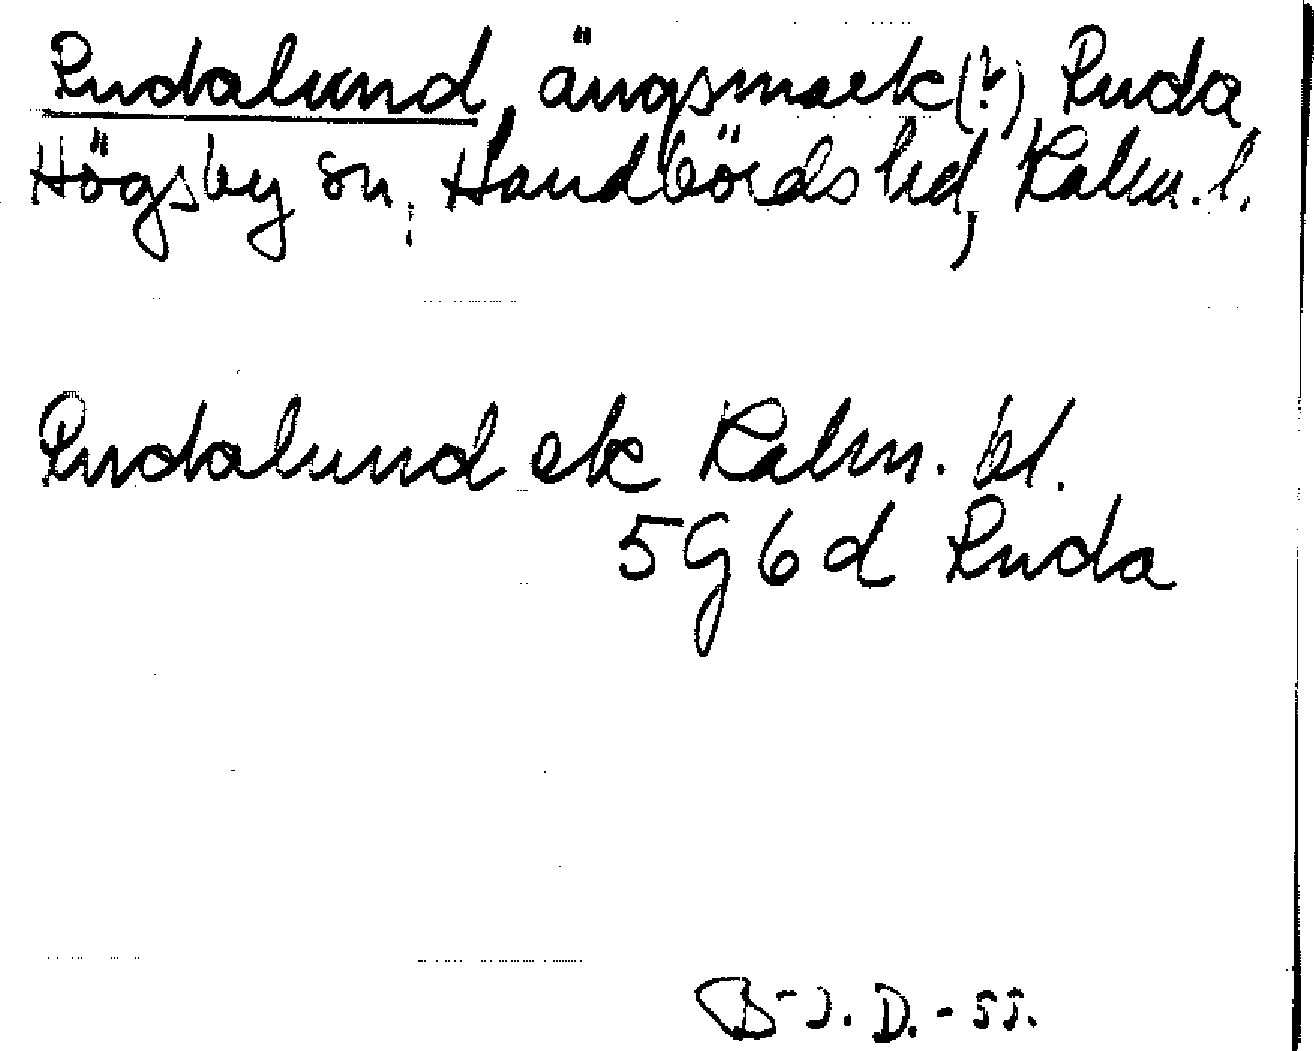 Rudalund, ängsmark(?) Ruda
Högsby sn, Handbörds hd, Kalm. l.
Rudalund ek Kalm. bl.
5G6d Ruda
B-J. D.-55.